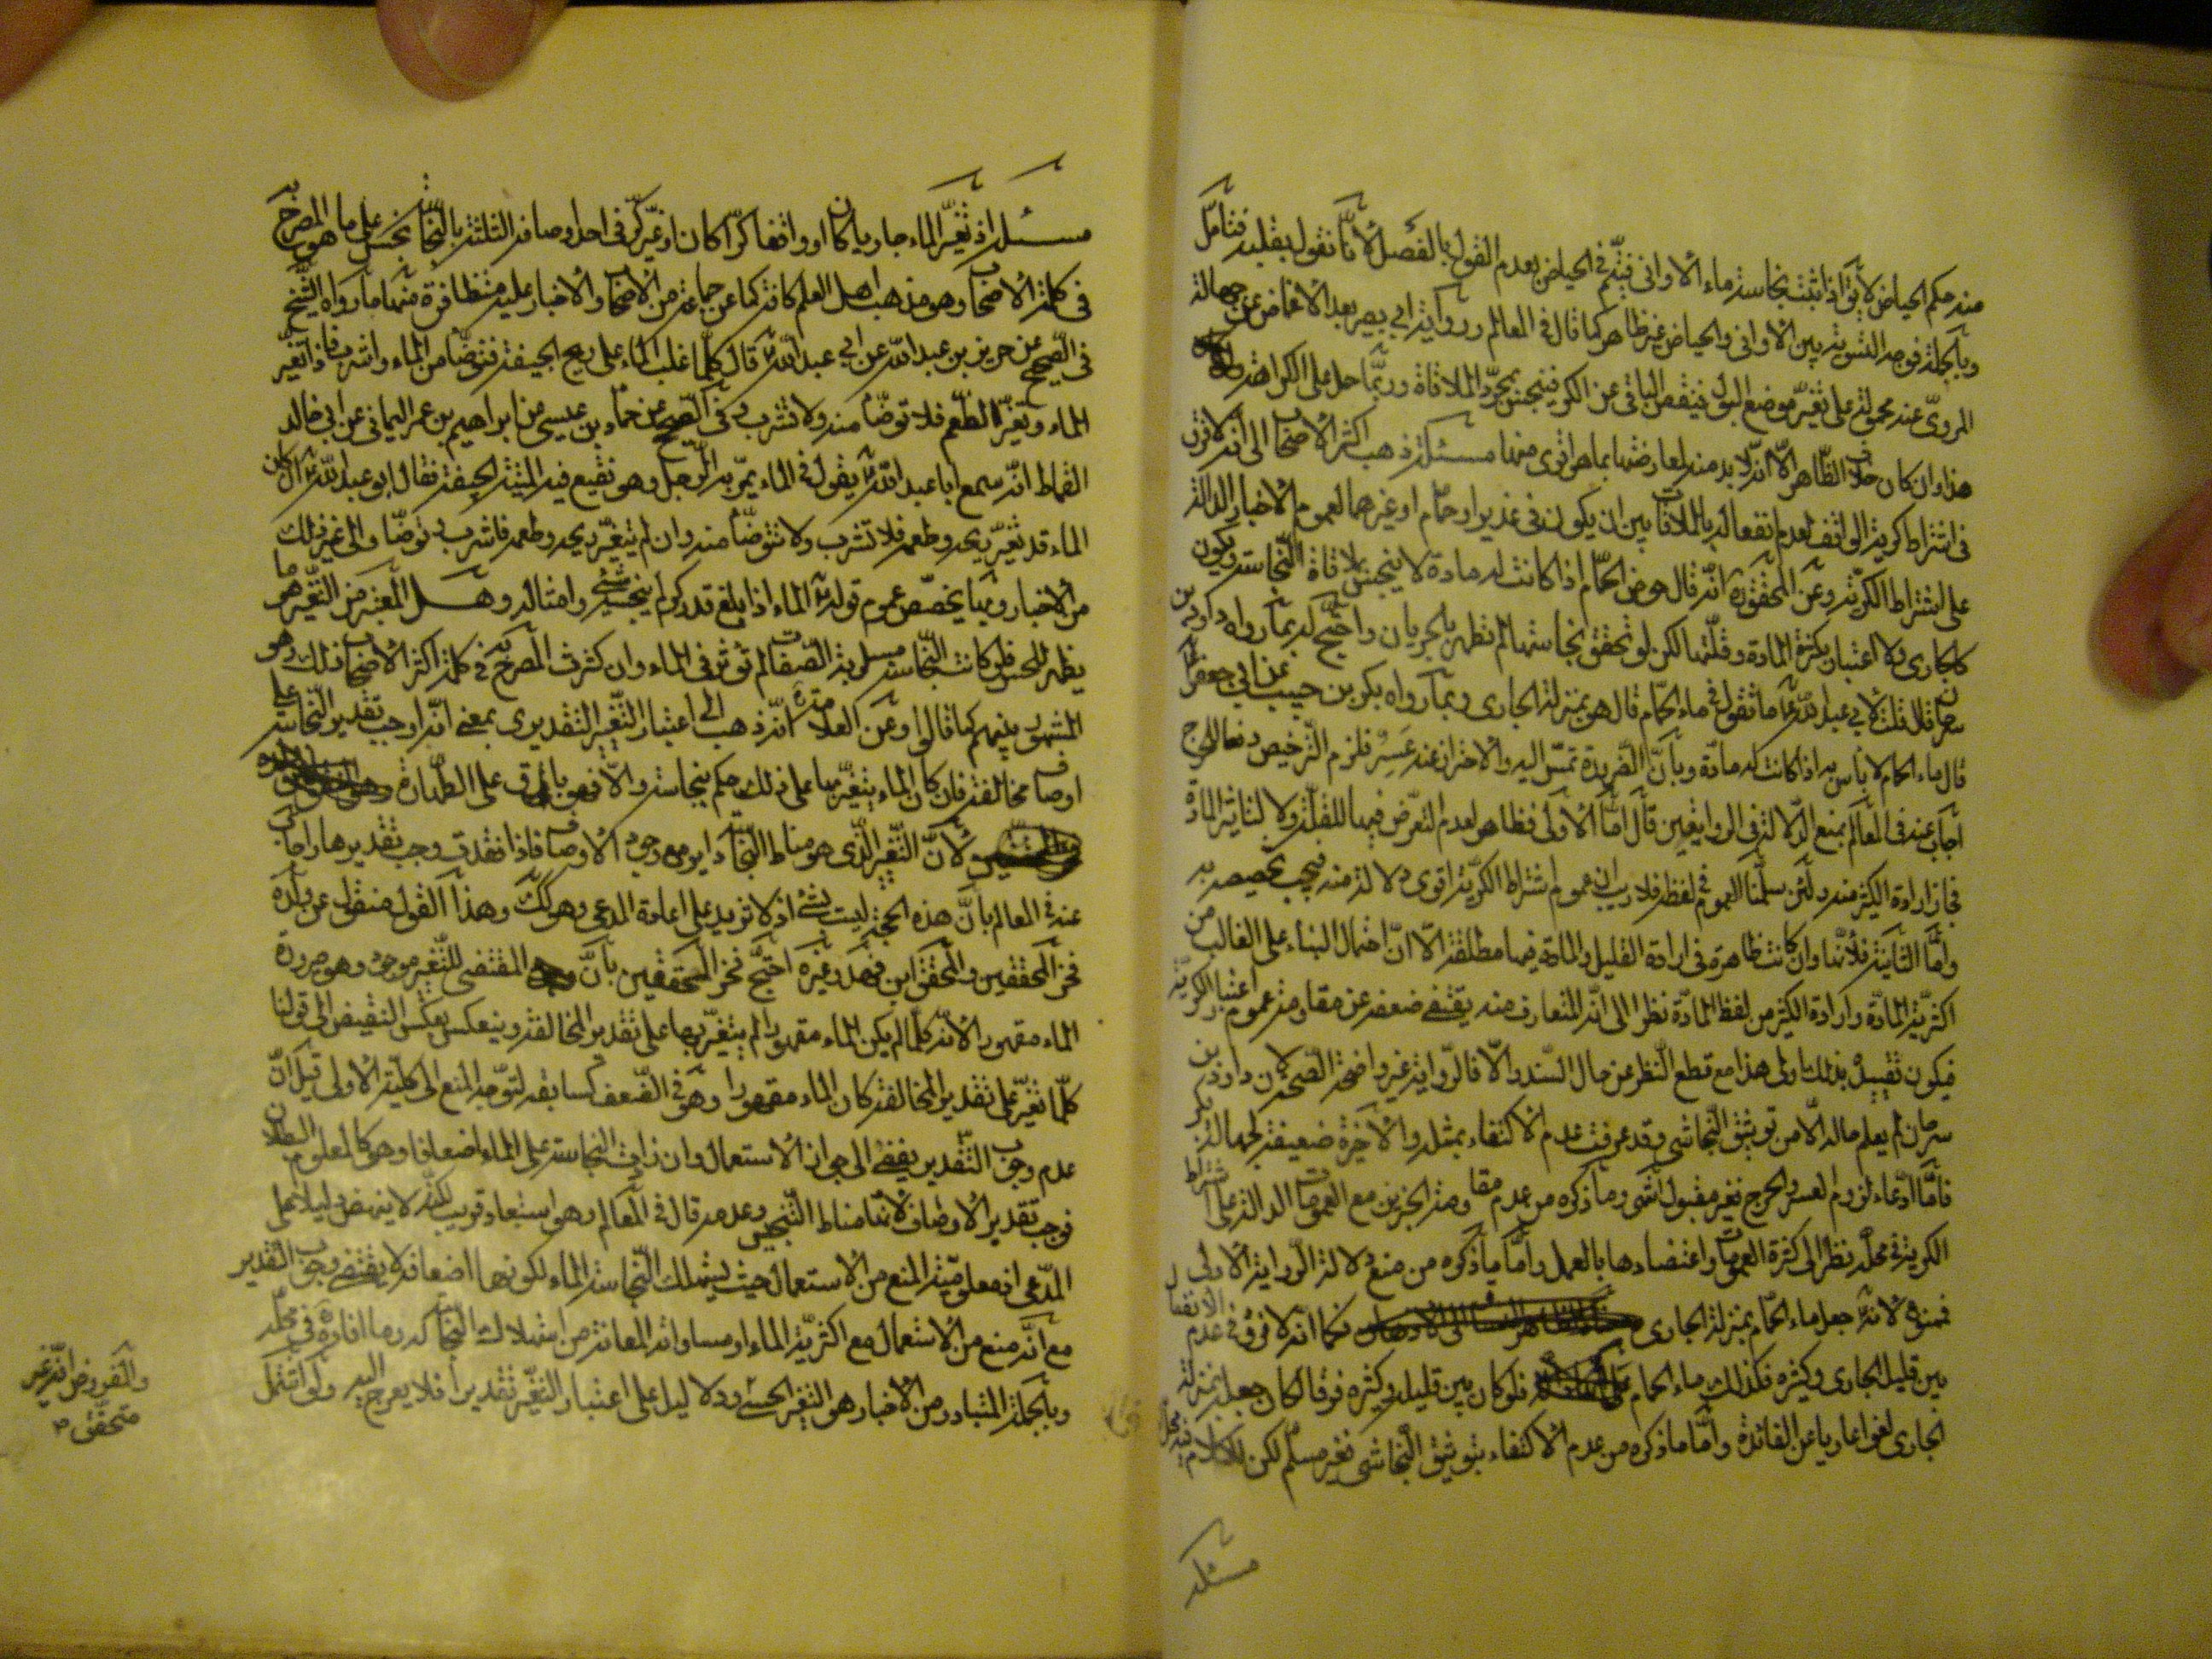 منه حكم الحياض لا يق اذا ثبت نجاسة ماء الاواني فيتم في الحياض بعدم القول بالفصل لأنا نقول بقلبه فتأمل
وبالجملة فوجه التسوية بين الاواني والحياض غير ظاهر كما قال في المعالم ورواية ابي بصير بعد الاغماض عن جهالة
المروي عنه محمولة على تغير موضع البول فينقص الباقي عن الكر فينجس بمجرد الملاقاة وربما حمل على الكراهة
هذا وان كان خلاف الظاهر الا انه لا بد منه لمعارضتها بما هو اقوى منها مسئلة ذهب اكثر الاصحاب الى انه لا فرق
في اشتراط كرية الواقف لعدم انفعاله بالملاقات بين ان يكون في غدير او حمام او غيرهما لعموم الاخبار الدالة
على اشتراط الكرية وعن المحقق ره انه قال حوض الحمام اذا كانت له مادة لا ينجس بملاقاة النجاسة ويكون
كالجاري ولا اعتبار بكثرة المادة وقلتها لكن لو تحقق نجاستها لم تطهر بالجريان واحتج له بما رواه داود بن
سرحان قال قلت لابي عبد الله ع ما تقول في ماء الحمام قال هو بمنزلة الجاري وبما رواه بكر بن حبيب عن ابي جعفر ع
قال ماء الحمام لا باس به اذا كانت له مادة وبأن الضرورة تمس اليه والاحتراز عنه عسر فلزم الترخيص دفعا للحرج
اجاب عنه في المعالم بمنع الدلالة في الروايتين قال اما الأولى فظاهر لعدم التعرض فيها للقلة ولا لتأثير المادة
فجاز ارادة الكثير منه ولئن سلمنا العموم في لفظه فلا ريب ان عموم اشتراط الكرية اقوى دلالة منه فيجب تخصيصه به
واما الثانية فلأنها وان كانت ظاهرة في ارادة القليل والمادة فيها مطلقة الا ان احتمال البناء على الغالب من
اكثرية المادة وارادة الكثير من لفظ المادة نظرا الى انه المتعارف منه يقتضي ضعفه عن مقاومة عموم اعتبار الكرية
فيكون تقييده بذلك اولى هذا مع قطع النظر عن حال السند والا فالرواية غير واضحة الصحة لان داود بن
سرحان لم يعلم حاله الا من توثيق النجاشي وقد عرفت عدم الاكتفاء بمثله والأخيرة ضعيفة لجهالة بكر
فأما ادعاء لزوم العسر والحرج فغير مقبول انتهى وما ذكره من عدم مقاومة الخبرين مع العمومات الدالة على اشتراط
الكرية في محله نظرا الى كثرة العمومات واعتضادها بالعمل وأما ما ذكره من منع دلالة الرواية الأولى
فممنوع لانه ع جعل ماء الحمام بمنزلة الجاري فكما انه لا فرق في عدم الانفعال
بين قليل الجاري وكثيره فكذلك ماء الحمام فلو كان بين قليله وكثيره فرق لكان جعله بمنزلة
الجاري لغوا عاريا عن الفائدة وأما ما ذكره من عدم الاكتفاء بتوثيق النجاشي فغير مسلم لكن للكلام فيه محل
مسئلة
مسئلة اذ تغير الماء جاريا كان او واقفا كرا كان او غير كر في احد اوصافه الثلثة بالنجاسة نجس على ما هو المصرح به
في كلام الاصحاب وهو مذهب اهل العلم كافة كما عن جماعة من الاصحاب والاخبار عليه متظافرة منها ما رواه الشيخ
في الصحيح عن حريز بن عبد الله عن ابي عبد الله ع قال كلما غلب الماء على ريح الجيفة فتوضأ من الماء واشرب فاذا تغير
الماء وتغير الطعم فلا توضأ منه ولا تشرب وفي الصحيح عن حماد بن عيسى عن ابراهيم بن عمر اليماني عن ابي خالد
القماط انه سمع ابا عبد الله ع يقول في الماء يمر به الرجل وهو نقيع فيه الميتة الجيفة فقال ابو عبد الله ع ان كان
الماء قد تغير ريحه وطعمه فلا تشرب ولا تتوضأ منه وان لم يتغير ريحه وطعمه فاشرب وتوضأ والى غير ذلك
من الاخبار وبها يخصص عموم قوله ع الماء اذا بلغ قدر كر لم ينجسه شيء وامثاله وهل المعتبر من التغير هو ما
يظهر للحس فلو كانت النجاسة مسلوبة الصفات لم تؤثر في الماء وان كثرت المصرح به في كلام اكثر الاصحاب ذلك وهو
المشهور بينهم كما قالوا وعن العلامة ره انه ذهب الى اعتبار التغير التقديري بمعنى انه اوجب تقدير النجاسة على
اوصاف مخالفة فان كان الماء يتغير بها على ذلك حكم بنجاسته والا فهو باق على الطهارة
لأن التغير الذي هو مناط النجاسة داير مع وجود الاوصاف فاذا فقدت وجب تقديرها واجاب
عنه في المعالم بأن هذه الحجة ليست بشيء اذ لا تزيد على اعادة المدعى وهو كك وهذا القول منقول عن ولده
فخر المحققين والمحقق ابن فهد وغيره احتج فخر المحققين بأن المقتضي للتغير موجود وهو صيرورة
الماء مقهورا لأنه كلما لم يكن الماء مقهورا لم يتغير بها على تقدير المخالفة وينعكس بعكس النقيض الى قولنا
كلما تغير على تقدير المخالفة كان الماء مقهورا وهو في الضعف كسابقه لتوجه المنع الى كلية الاولى قيل ان
عدم وجوب التقدير يفضي الى جواز الاستعمال وان زادت النجاسة على الماء اضعافا وهو كالمعلوم البطلان
فوجب تقدير الاوصاف لأنها مناط التنجيس وعدمه قال في المعالم وهو استبعاد قريب لكنه لا ينهض دليلا على
المدعى اذ معلومية المنع من الاستعمال حيث يستهلك النجاسة الماء لكونها اضعافه لا يقتضي وجوب التقدير
مع أنه منع من الاستعمال مع اكثرية الماء او مساواته المعانة من استهلاك النجاسة له وما افاده في محله
وبالجملة المتبادر من الاخبار هو التغير الحسي ولا دليل على اعتبار التغير تقديرا فلا يعرج اليه ولو اشتمل
والمفروض انه غير
متحقق